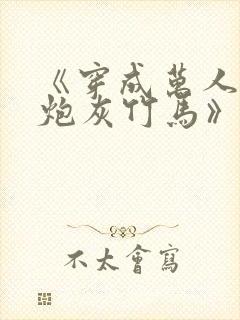 《穿成萬人
炮灰竹馬》
不太會寫